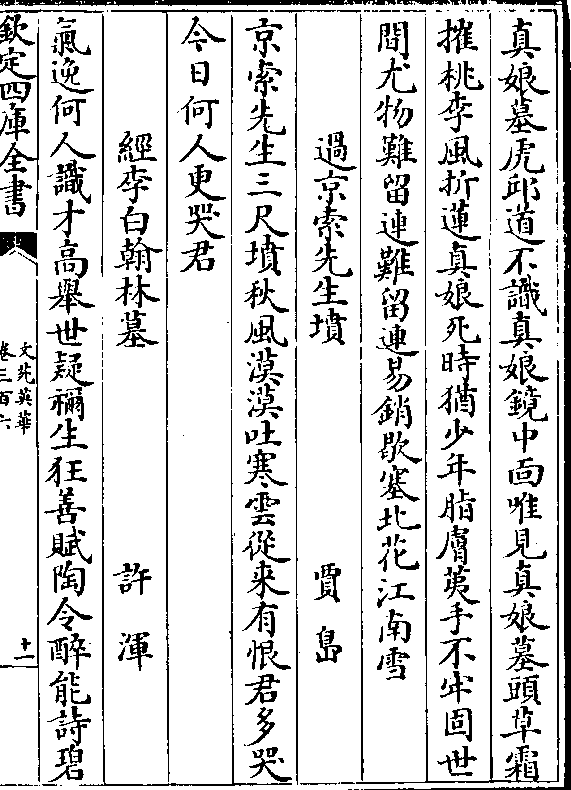 真娘墓虎邱道不識真娘鏡中面唯見真娘墓頭草霜
摧桃李風折蓮真娘死時猶少年脂膚荑手不牢固世
間尤物難留連難留連易銷歇塞北花江南雪
過京索先生墳 賈島
京索先生三尺墳秋風漠漠吐寒雲從來有恨君多哭
今日何人更哭君
經李白翰林墓 許渾
氣逸何人識才高舉世疑禰生狂善賦陶令醉能詩碧
欽定四庫全書
文苑英華
卷三百六
十一